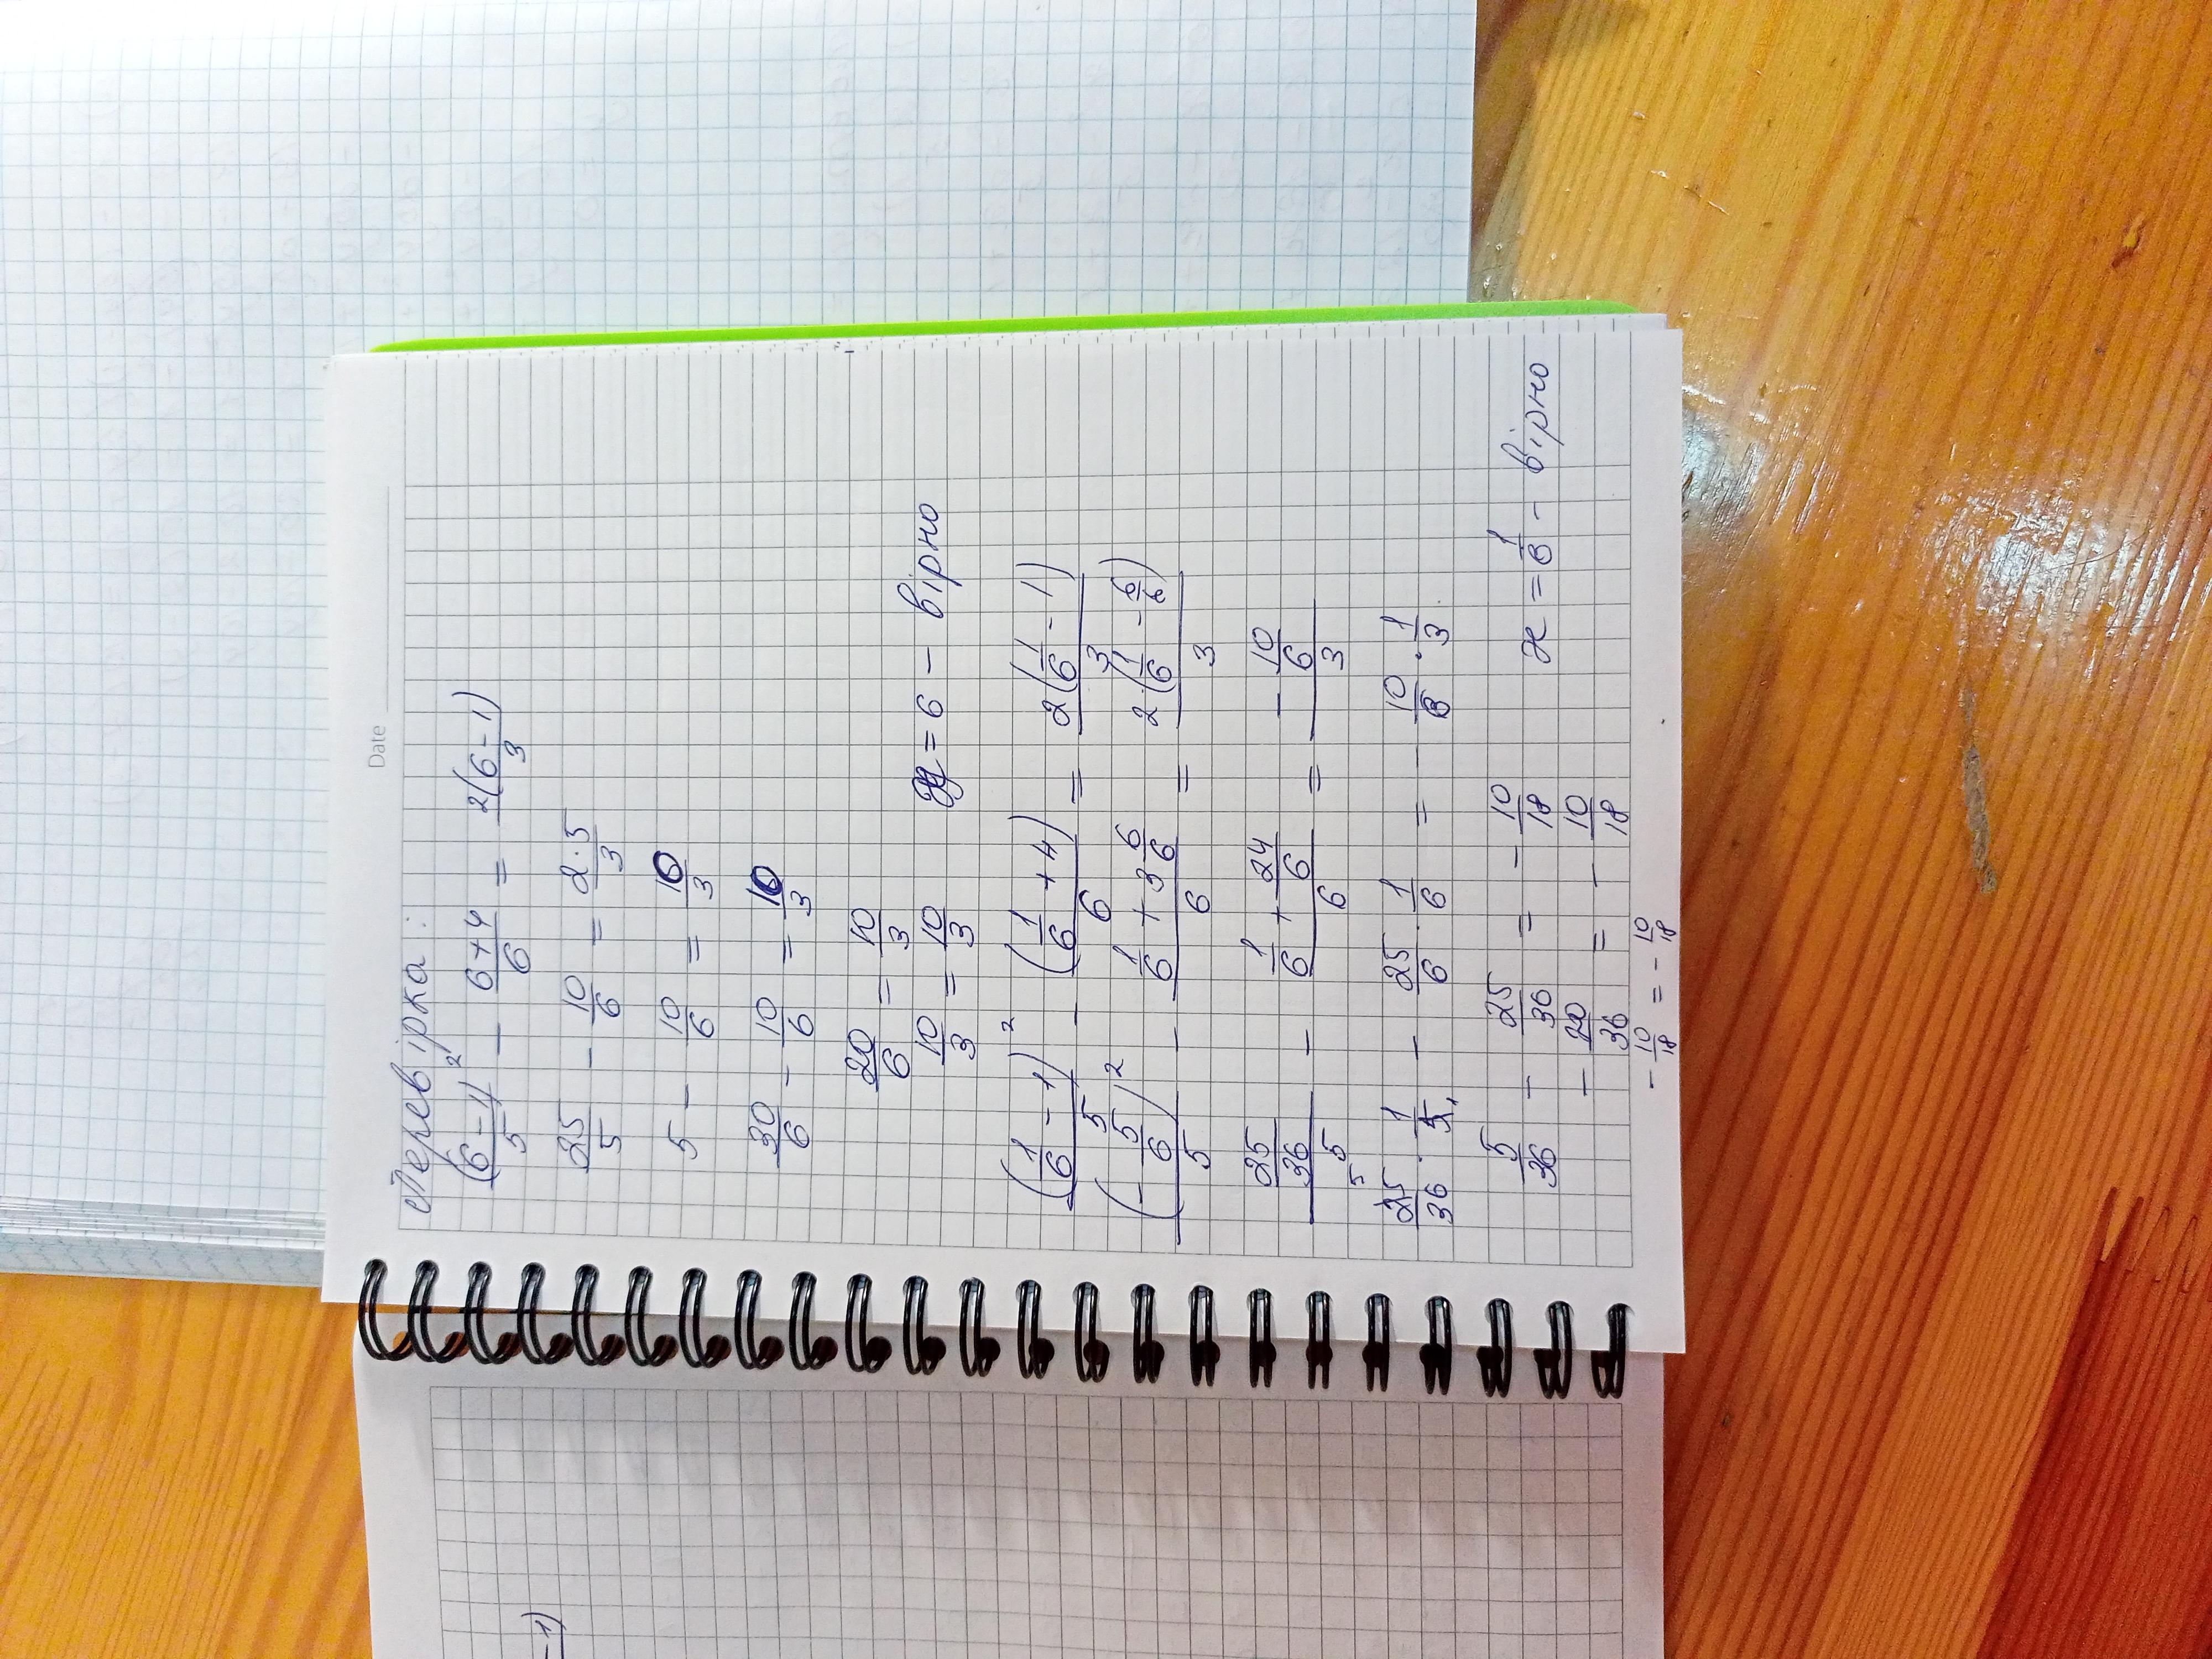 Date
Перевірка:
(6-1)²/5 - (6+4)/6 = 2(6-1)/3
25/5 - 10/6 = 2·5/3
5 - 10/6 = 10/3
30/6 - 10/6 = 10/3
20/6 = 10/3
10/3 = 10/3
x = 6 - вірно
(1/6 - 1)²/5 - (1/6 + 4)/6 = 2(1/6 - 1)/3
(-5/6)²/5 - (1/6 + 3 6/6)/6 = 2·(1/6 - 6/6)/3
25/36/5 - (1/6 + 24/6)/6 = -10/6/3
25/36 · 1/5 - 25/6 · 1/6 = - 10/6 · 1/3
5/36 - 25/36 = - 10/18
- 20/36 = - 10/18
- 10/18 = - 10/18
x = 1/6 - вірно
-1)